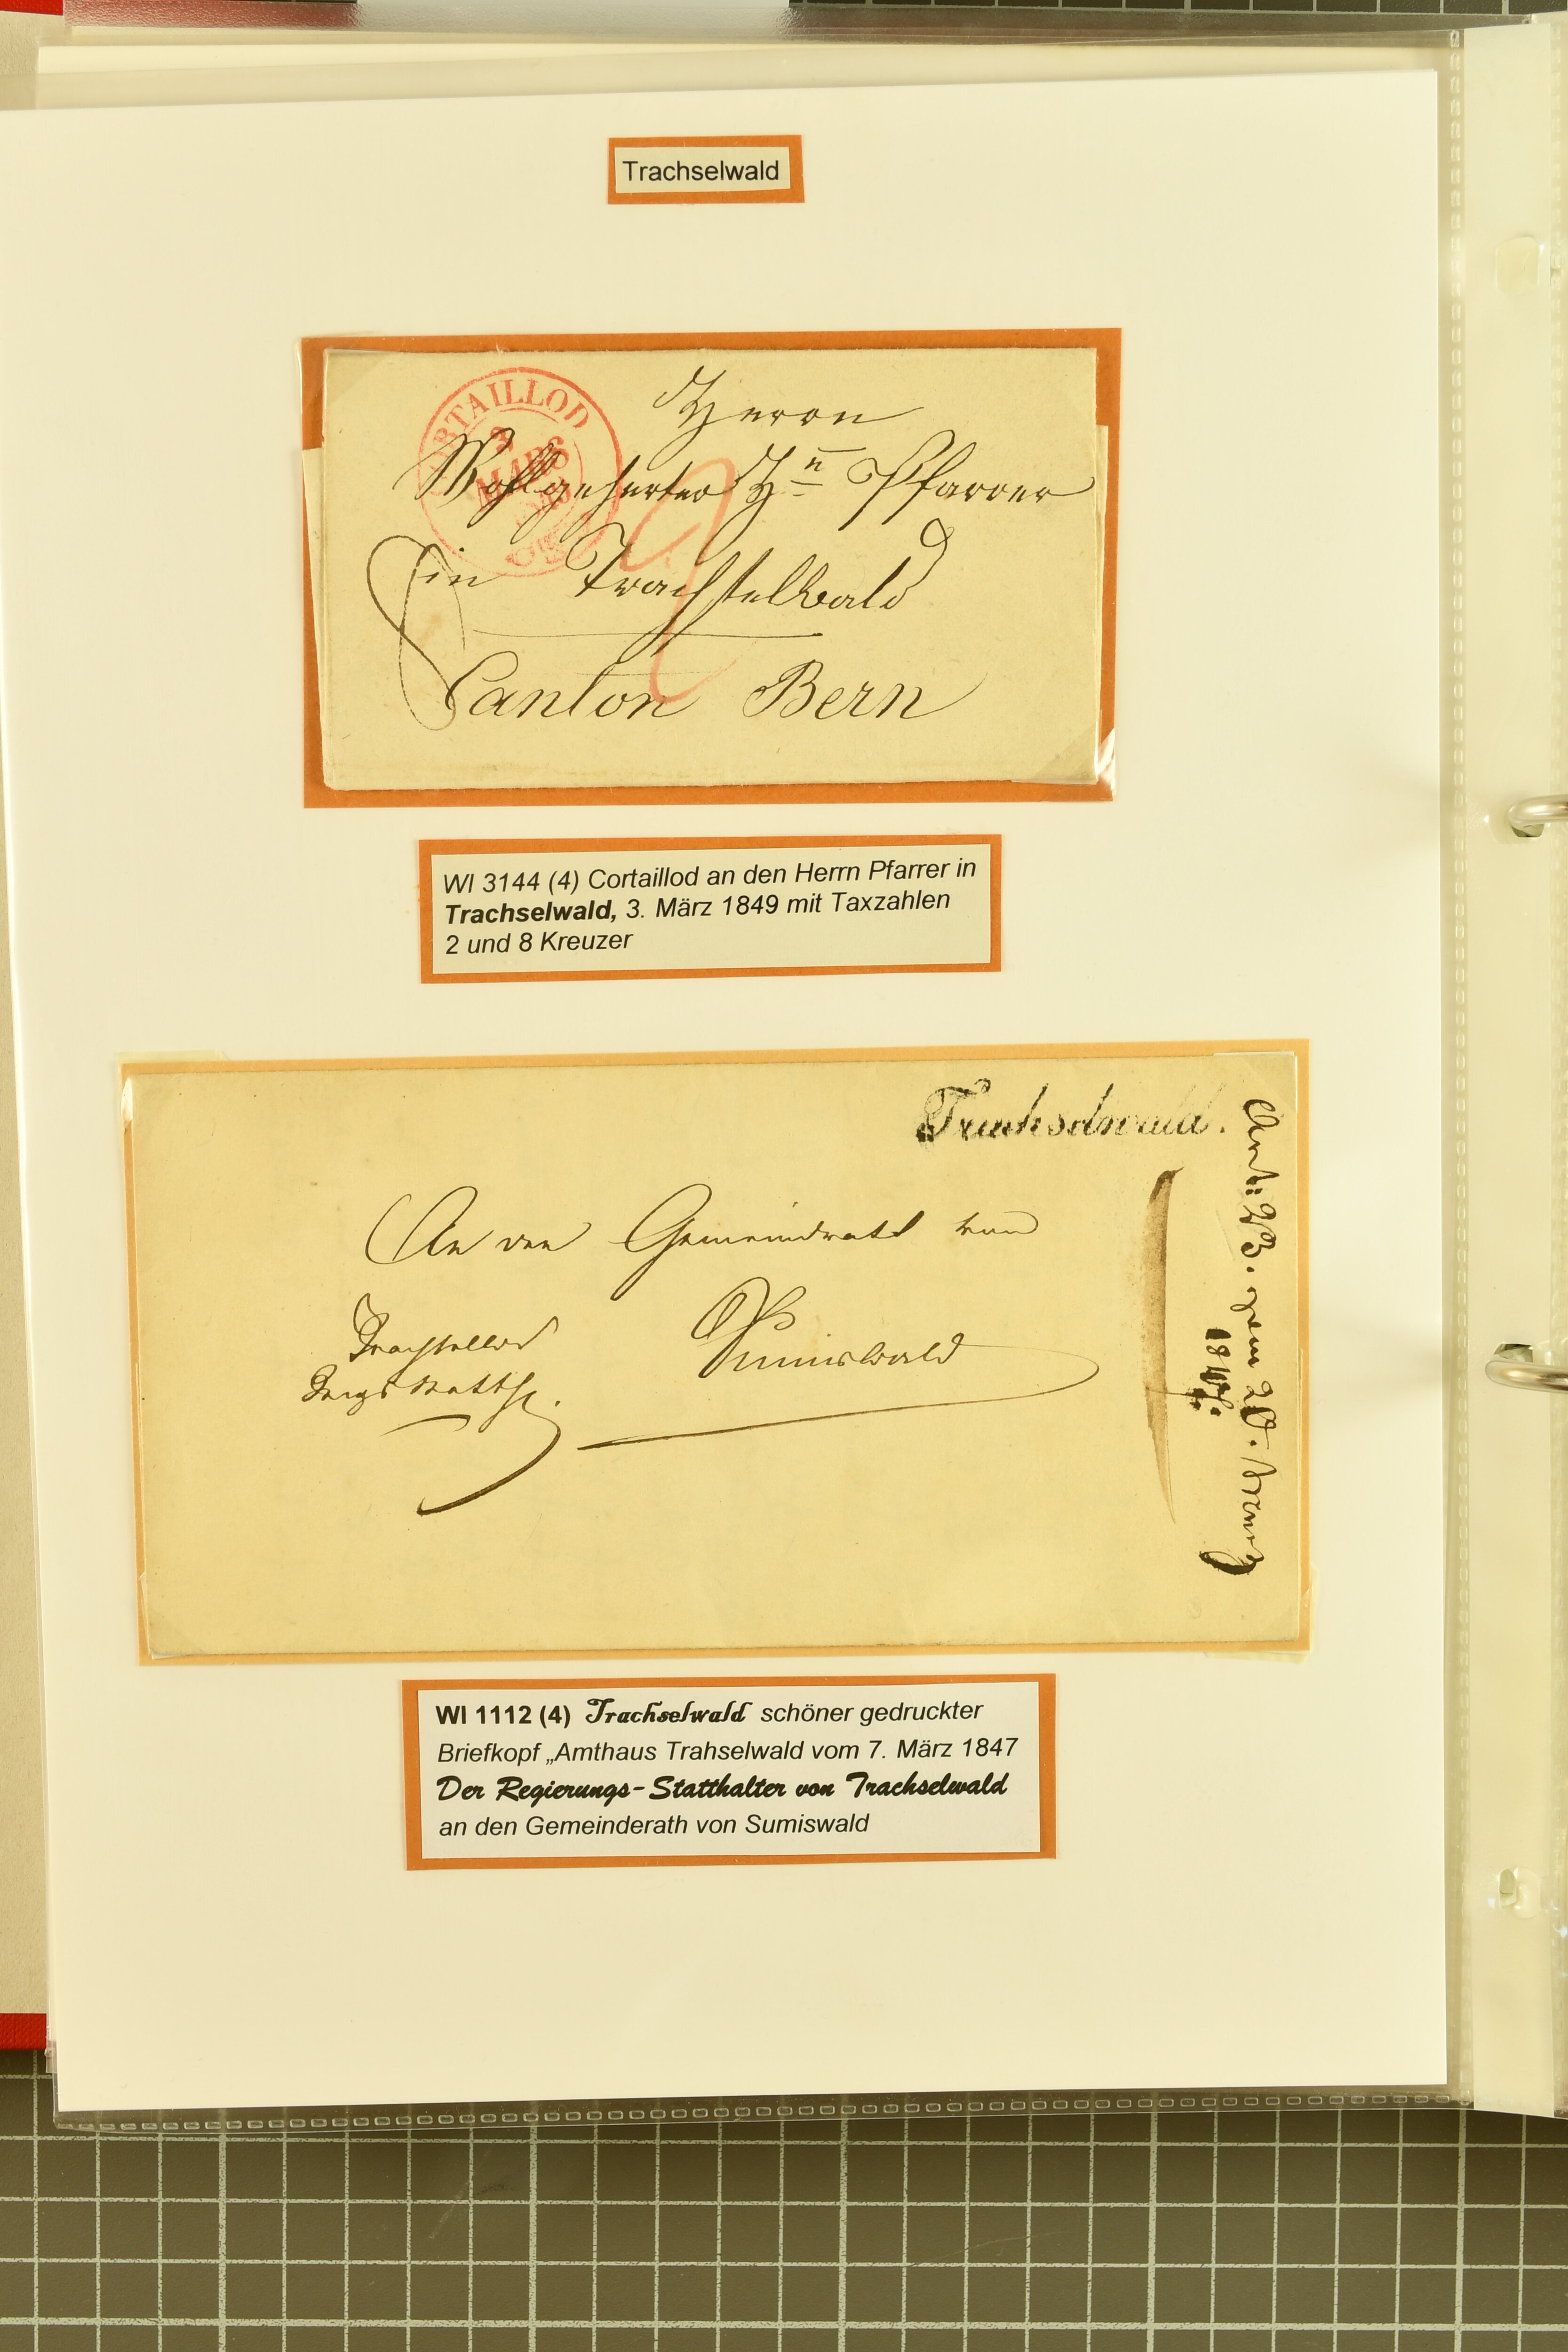 Trachselwald
CORTAILLOD
3
MARS
Herrn
Wohlgeehrter Hn Pfarrer
in Trachselwald
Canton Bern
2
8
WI 3144 (4) Cortaillod an den Herrn Pfarrer in
Trachselwald, 3. März 1849 mit Taxzahlen
2 und 8 Kreuzer
Trachselwald.
An den Gemeindrath von
Sumiswald
Trachselwd
1847.
WI 1112 (4) Trachselwald schöner gedruckter
Briefkopf „Amthaus Trahselwald vom 7. März 1847
Der Regierungs-Statthalter von Trachselwald
an den Gemeinderath von Sumiswald